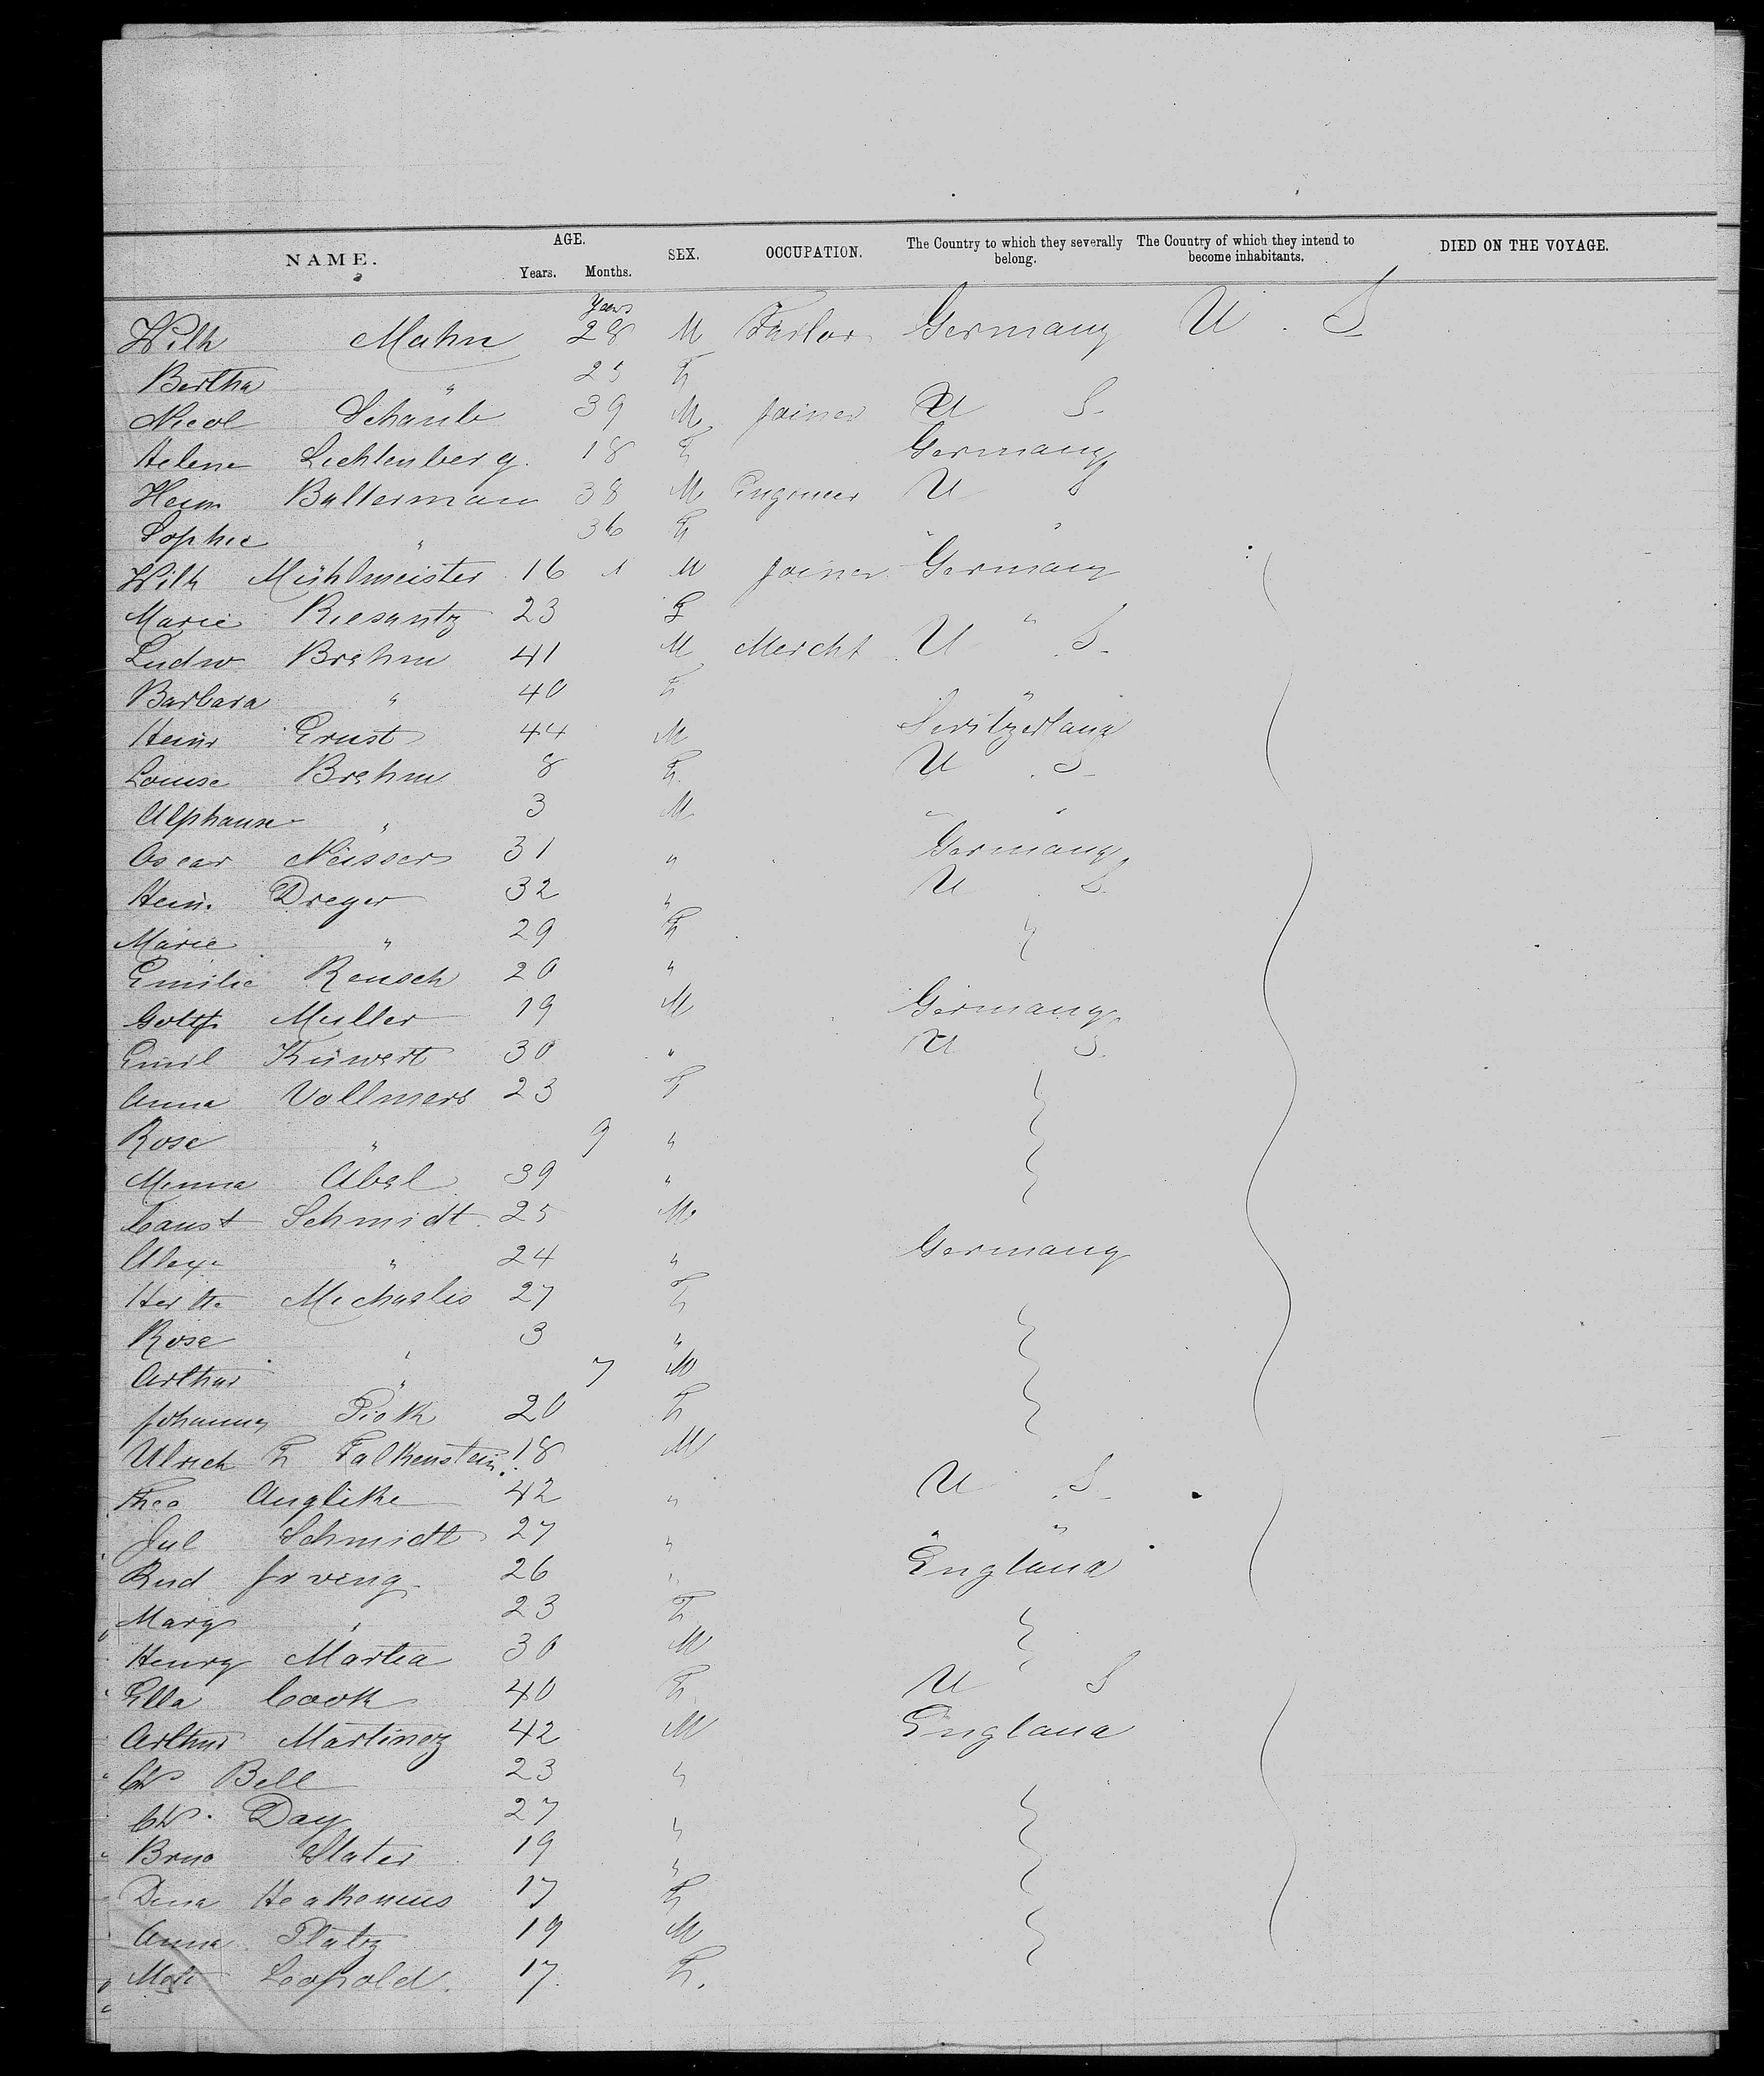 NAME. AGE. Years. Months. SEX. OCCUPATION. The Country to which they severally belong. The Country of which they intend to become inhabitants. DIED ON THE VOYAGE.
Years
Wilh Mahn 28 M Tailor Germany U. S
Bertha " 25 F
Nicol Schaub 39 M Joiner U S.
Helene Lichtenberg. 18 F Germany
Heinr Balterman 38 M Engineer U S
Sophie " 36 F " "
Wilh Mühlmeister 16 M Joiner Germany
Marie Riesantz 23 F "
Ludw Brehm 41 M Mercht U. S.
Barbara " 40 F "
Heinr Ernst 44 M Switzerland
Louise Brehm 8 F U. S.
Alphonse " 3 M " "
Oscar Neisser 31 " Germany
Hein. Dreyer 32 " U. S.
Marie " 29 F
Emilie Reusch 20 "
Gottfr Muller 19 M Germany
Emil Küwert 30 " U S.
Anna Vollmers 23 F
Rose " 9 "
Minna Abel 39 "
Const Schmidt. 25 M.
Alex. " 24 " Germany
Hertte Michaelis 27 F
Rose " 3 "
Arthur " 7 M
Johanny Piok 20 F
Ulrich F Falkenstein. 18 M
Theo Anglike 42 " U. S.
Jul Schmidt 27 " " "
Rud Irving 26 " England
Mary " 23 F
Henry Martea 30 M
Ella Cook 40 F. U S
Arthur Martinez 42 M England
Ch Bell 23 "
Ch. Day 27 "
Bruo Slater 19 "
Dina Heakenius 17 F
Anna Platz 19 M
Leopold. 17. F.